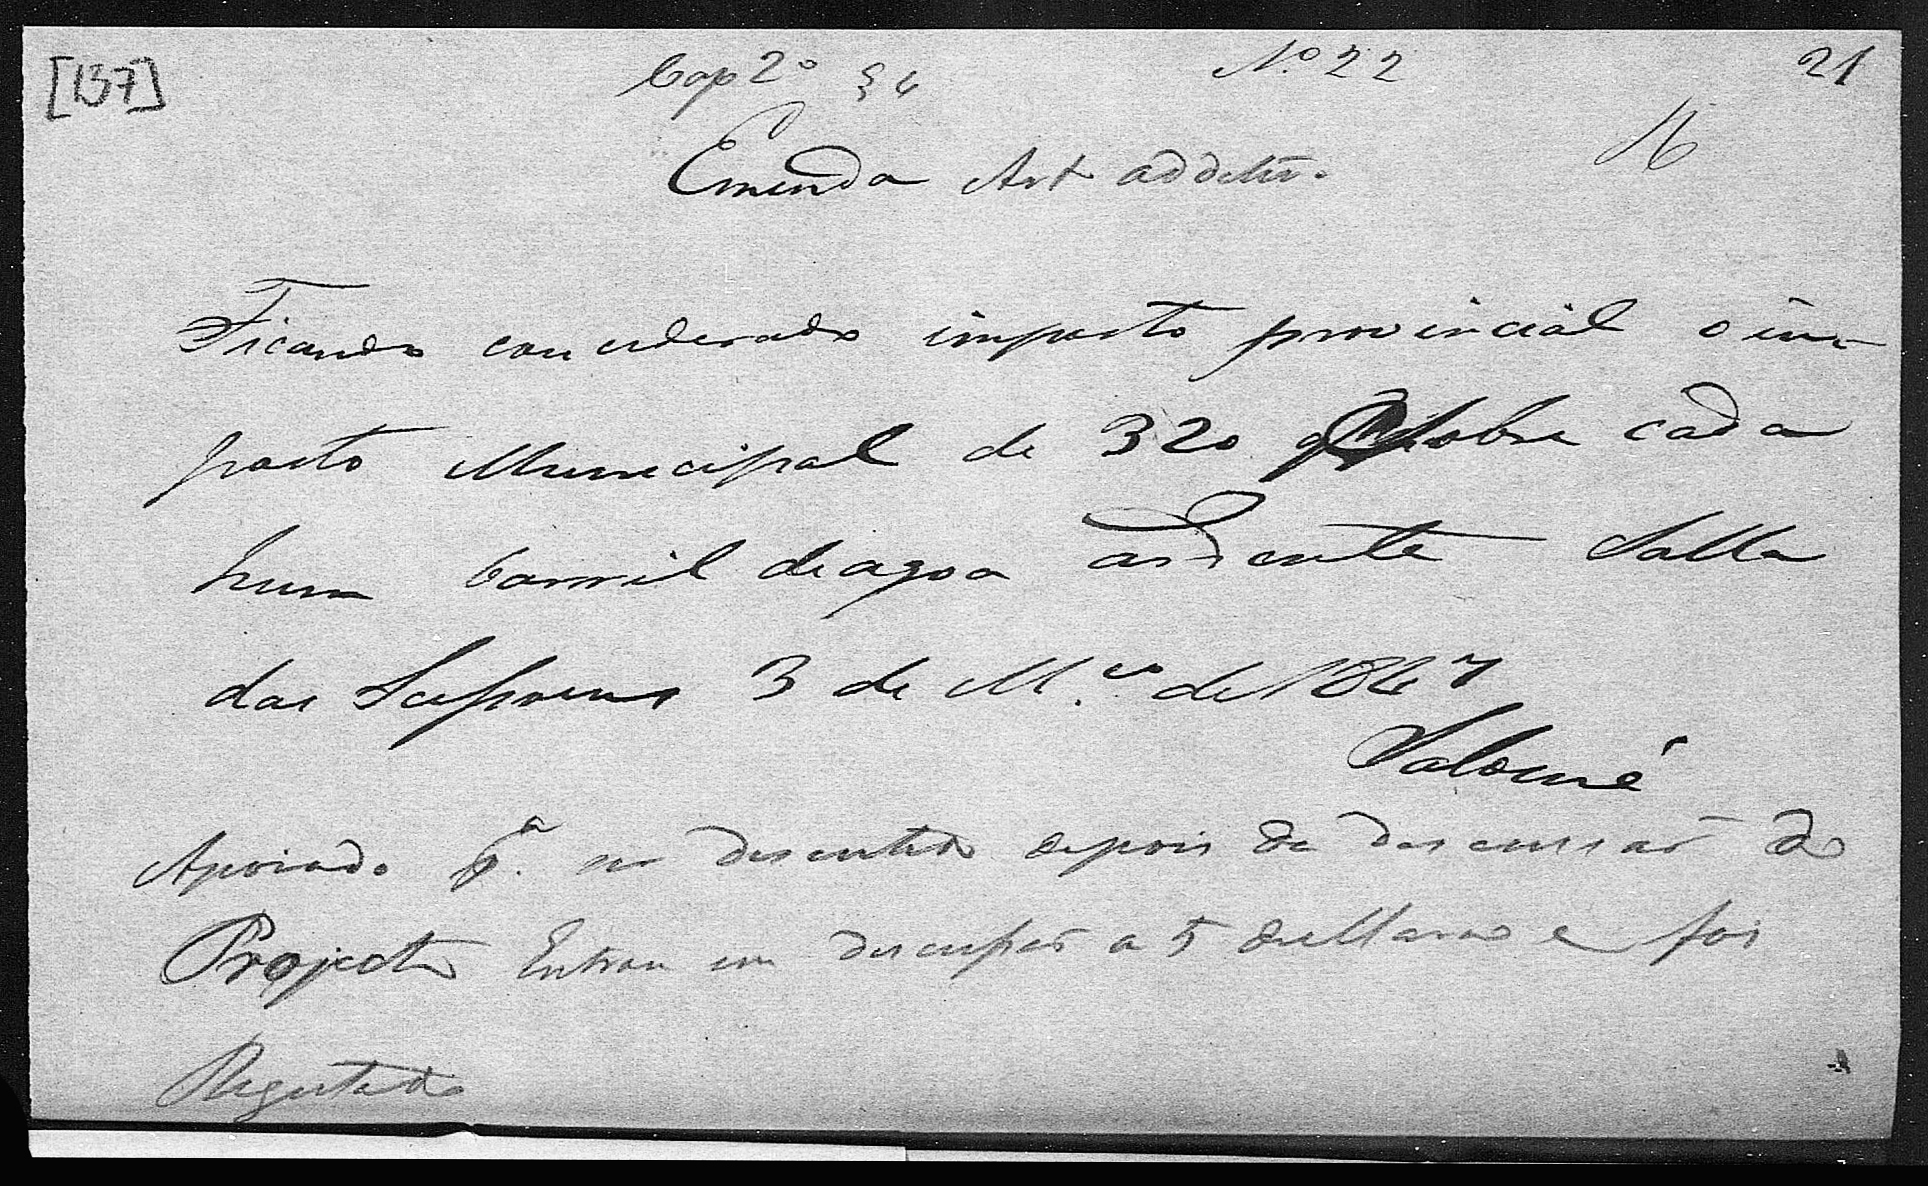 [137] Cap 2º § 4 Nº 22 21
Emenda Art additº
Ficando conciderado imposto provincial o im-
posto Municipal de 320 sobre cada
hum barril de agoa ardente Salla
das Sessoens 3 de M.ço de 1847
Salomé
Apoiado pª ser descutido depois da descussão do
Projecto Entrou em descussão a 5 de Março e foi
Regeitado